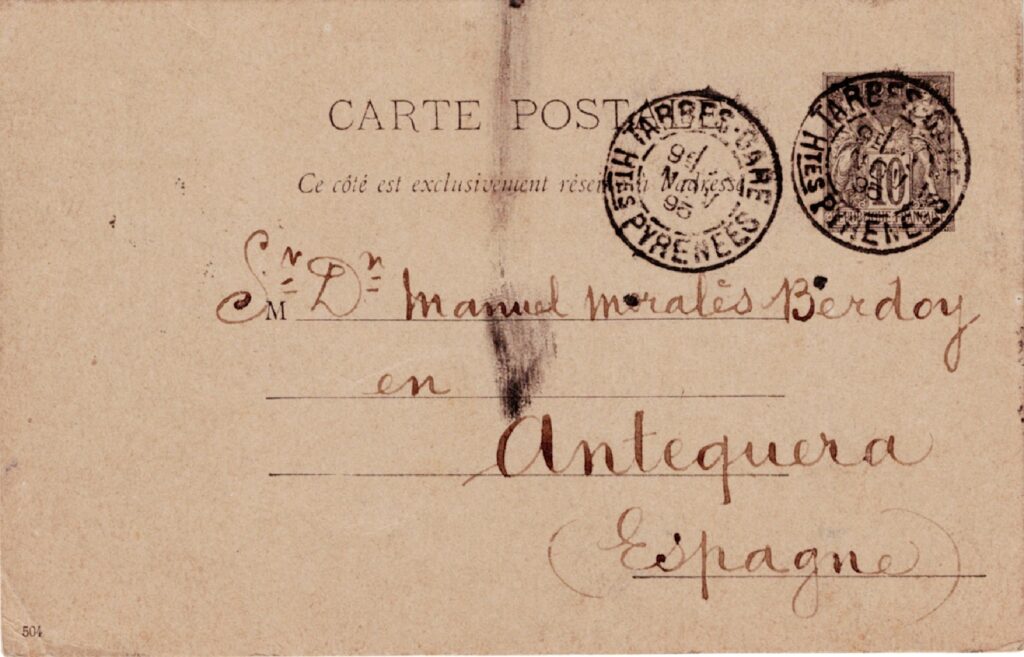 CARTE POST
Ce côté est exclusivement réservé à l'adresse
TARBES-GARE
HTES PYRENEES
95
TARBES-GARE
HTES PYRENEES
95
10
Sr. Dn. Manuel Moralès Berdoy
M
en
Antequera
(Espagne)
504